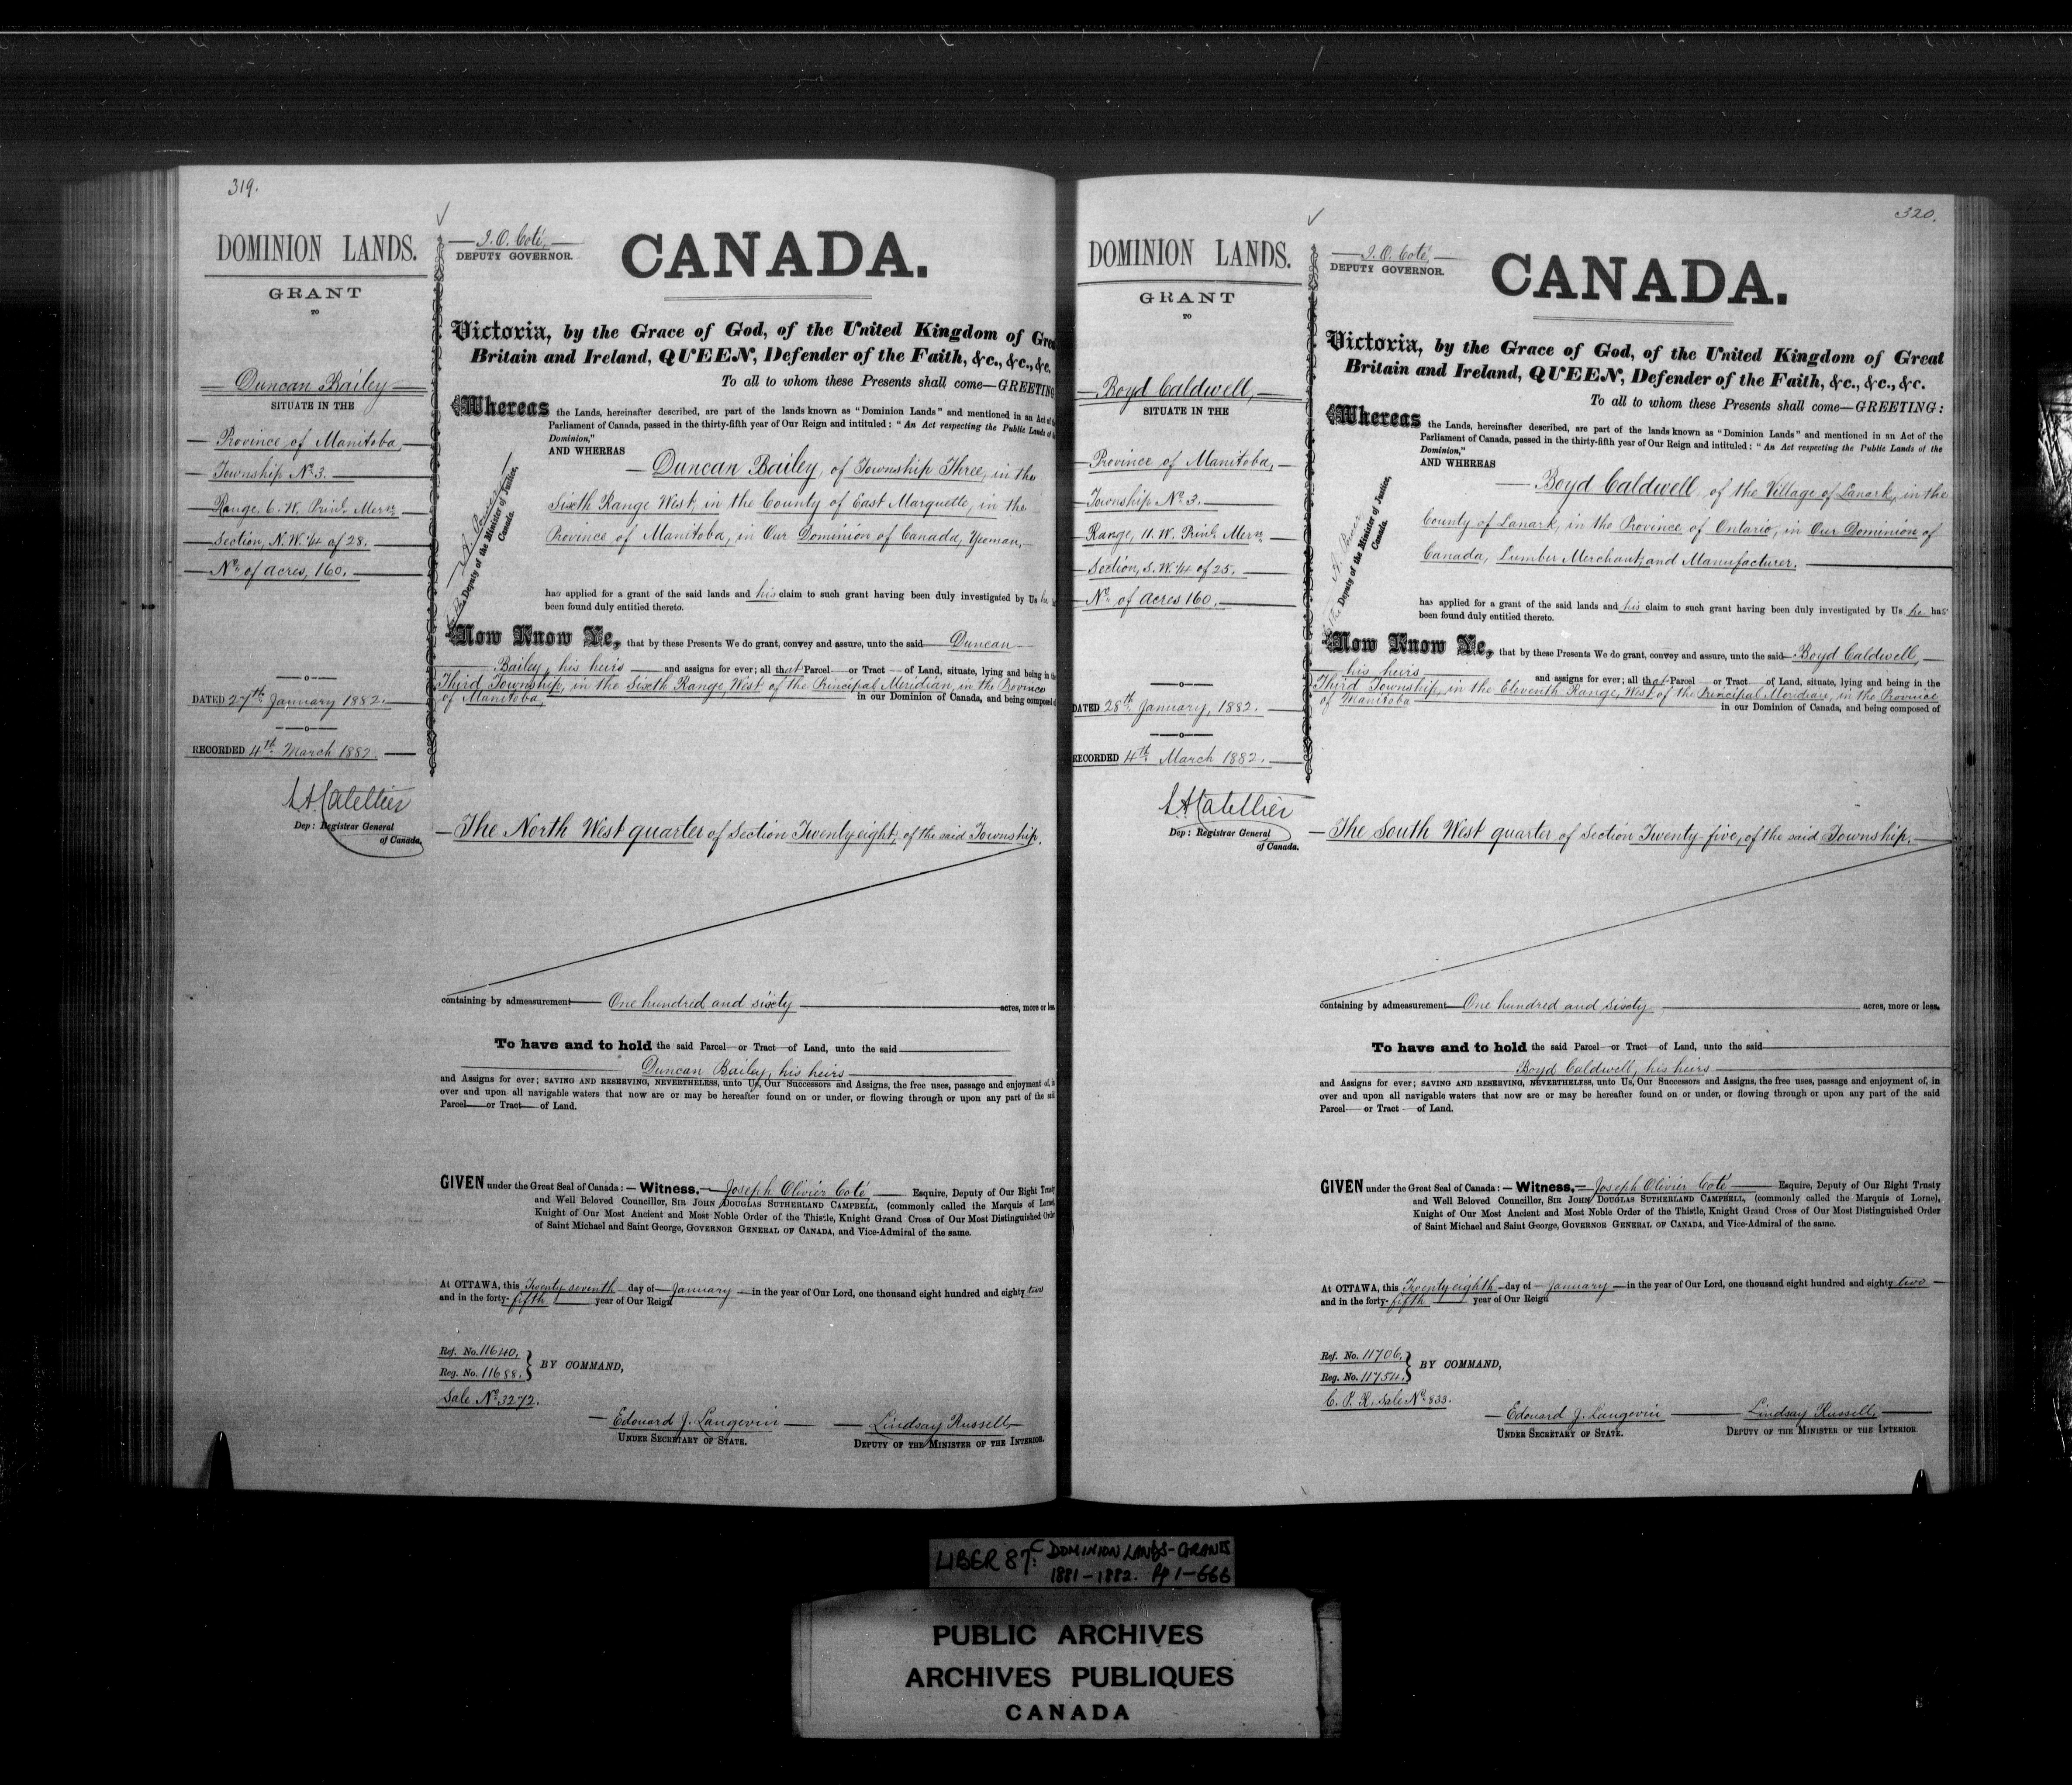 319.
DOMINION LANDS.
GRANT
TO
Duncan Bailey
SITUATE IN THE
Province of Manitoba,
Township No. 3.
Range. 6. W. Prinl. Mern.
Section, N. W. 1/4 of 28.
No. of acres, 160.
DATED 27th January 1882.
RECORDED 4th March 1882.
Dep: Registrar General
of Canada.
J. O. Coté,
DEPUTY GOVERNOR.
CANADA.
Victoria, by the Grace of God, of the United Kingdom of Grea
Britain and Ireland, QUEEN, Defender of the Faith, &c., &c., &c.
To all to whom these Presents shall come—GREETING
Whereas the Lands, hereinafter described, are part of the lands known as "Dominion Lands" and mentioned in an Act of the
Parliament of Canada, passed in the thirty-fifth year of Our Reign and intituled: "An Act respecting the Public Lands of the
Dominion,"
AND WHEREAS
Duncan Bailey, of Township Three, in the
Sixth Range West, in the County of East Marquette, in the
Province of Manitoba, in Our Dominion of Canada, Yeoman,
Deputy of the Minister of Justice,
Canada.
has applied for a grant of the said lands and his claim to such grant having been duly investigated by Us he
been found duly entitled thereto.
Now Know Ye, that by these Presents We do grant, convey and assure, unto the said Duncan
Bailey, his heirs and assigns for ever; all that Parcel or Tract of Land, situate, lying and being in the
Third Township, in the Sixth Range, West of the Principal Meridian, in the Province
of Manitoba, in our Dominion of Canada, and being composed of
The North West quarter of Section Twenty eight, of the said Township.
containing by admeasurement One hundred and sixty acres, more or less
To have and to hold the said Parcel or Tract of Land, unto the said
Duncan Bailey, his heirs
and Assigns for ever; SAVING AND RESERVING, NEVERTHELESS, unto Us, Our Successors and Assigns, the free uses, passage and enjoyment of, in
over and upon all navigable waters that now are or may be hereafter found on or under, or flowing through or upon any part of the said
Parcel or Tract of Land.
GIVEN under the Great Seal of Canada:—Witness, Joseph Olivier Coté Esquire, Deputy of Our Right Trusty
and Well Beloved Councillor, SIR JOHN DOUGLAS SUTHERLAND CAMPBELL, (commonly called the Marquis of Lorne)
Knight of Our Most Ancient and Most Noble Order of the Thistle, Knight Grand Cross of Our Most Distinguished Order
of Saint Michael and Saint George, GOVERNOR GENERAL OF CANADA, and Vice-Admiral of the same.
At OTTAWA, this Twenty seventh day of January in the year of Our Lord, one thousand eight hundred and eighty two
and in the forty-fifth year of Our Reign
Ref. No. 11640.
Reg. No. 11688.
BY COMMAND,
Sale No. 3272.
Edouard J. Langevin
UNDER SECRETARY OF STATE.
Lindsay Russell,
DEPUTY OF THE MINISTER OF THE INTERIOR.
320.
DOMINION LANDS.
GRANT
TO
Boyd Caldwell,
SITUATE IN THE
Province of Manitoba,
Township No. 3.
Range, 11. W. Prinl. Mern.
Section, S. W. 1/4 of 25.
No. of acres 160.
DATED 28th January, 1882.
RECORDED 4th March 1882.
Dep: Registrar General
of Canada.
J. O. Coté,
DEPUTY GOVERNOR.
CANADA.
Victoria, by the Grace of God, of the United Kingdom of Great
Britain and Ireland, QUEEN, Defender of the Faith, &c., &c., &c.
To all to whom these Presents shall come—GREETING:
Whereas the Lands, hereinafter described, are part of the lands known as "Dominion Lands" and mentioned in an Act of the
Parliament of Canada, passed in the thirty-fifth year of Our Reign and intituled: "An Act respecting the Public Lands of the
Dominion,"
AND WHEREAS
Boyd Caldwell, of the Village of Lanark, in the
County of Lanark, in the Province of Ontario, in Our Dominion of
Canada, Lumber Merchant, and Manufacturer.
Deputy of the Minister of Justice,
Canada.
has applied for a grant of the said lands and his claim to such grant having been duly investigated by Us he has
been found duly entitled thereto.
Now Know Ye, that by these Presents We do grant, convey and assure, unto the said Boyd Caldwell,
his heirs and assigns for ever; all that Parcel or Tract of Land, situate, lying and being in the
Third Township, in the Eleventh Range, West of the Principal Meridian, in the Province
of Manitoba in our Dominion of Canada, and being composed of
The South West quarter of Section Twenty-five, of the said Township.
containing by admeasurement One hundred and sixty acres, more or less.
To have and to hold the said Parcel or Tract of Land, unto the said
Boyd Caldwell, his heirs
and Assigns for ever; SAVING AND RESERVING, NEVERTHELESS, unto Us, Our Successors and Assigns, the free uses, passage and enjoyment of, in
over and upon all navigable waters that now are or may be hereafter found on or under, or flowing through or upon any part of the said
Parcel or Tract of Land.
GIVEN under the Great Seal of Canada:—Witness, Joseph Olivier Coté Esquire, Deputy of Our Right Trusty
and Well Beloved Councillor, SIR JOHN DOUGLAS SUTHERLAND CAMPBELL, (commonly called the Marquis of Lorne),
Knight of Our Most Ancient and Most Noble Order of the Thistle, Knight Grand Cross of Our Most Distinguished Order
of Saint Michael and Saint George, GOVERNOR GENERAL OF CANADA, and Vice-Admiral of the same.
At OTTAWA, this Twenty eighth day of January in the year of Our Lord, one thousand eight hundred and eighty two
and in the forty-fifth year of Our Reign
Ref. No. 11706.
Reg. No. 11754.
BY COMMAND,
C. P. R. Sale No. 833.
Edouard J. Langevin
UNDER SECRETARY OF STATE.
Lindsay Russell,
DEPUTY OF THE MINISTER OF THE INTERIOR.
LIBER 87C: DOMINION LANDS-GRANTS
1881-1882. Pp 1-666
PUBLIC ARCHIVES
ARCHIVES PUBLIQUES
CANADA